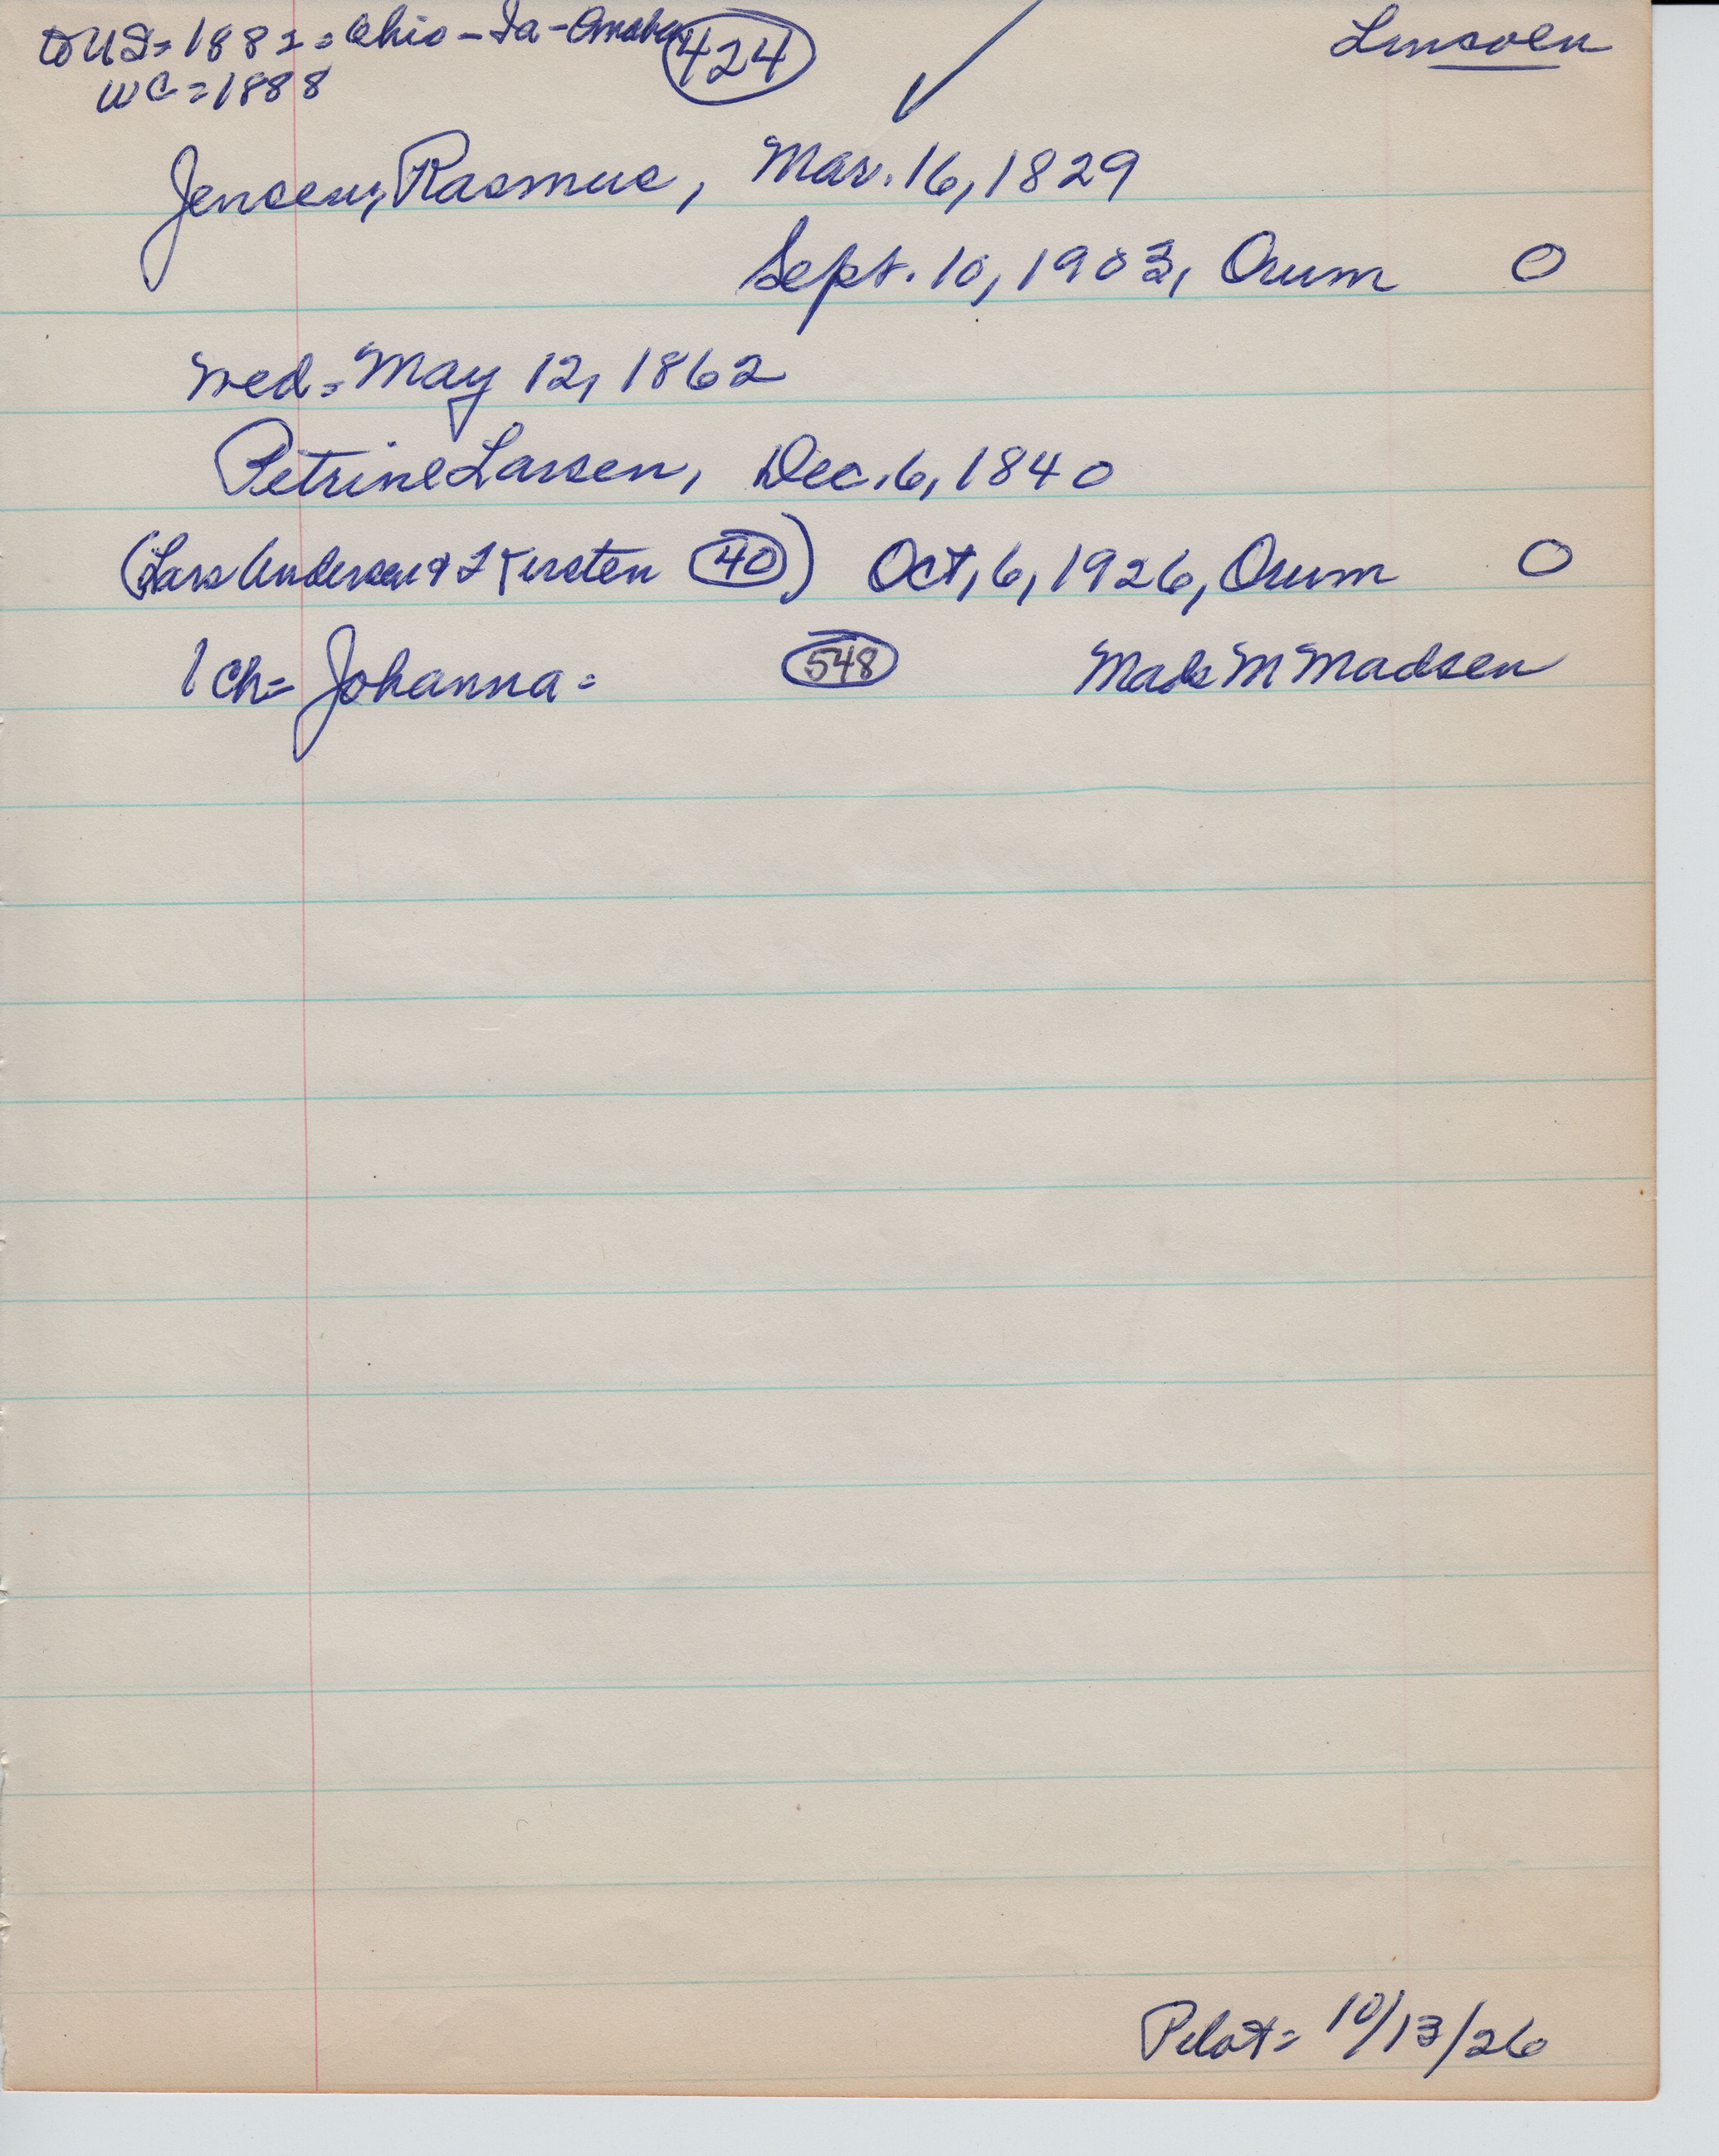 to US = 1882 = Ohio - Ia - Omaha 424 ✓
WC = 1888
Jensen, Rasmus, Mar. 16, 1829
Sept. 10, 1903, Orum O
Wed = May 12, 1862
Petrine Larsen, Dec. 6, 1840
(Lars Andersen & Kirsten 40) Oct, 6, 1926, Orum O
1 ch = Johanna = 548 Mads M Madsen
Pilot = 10/13/26